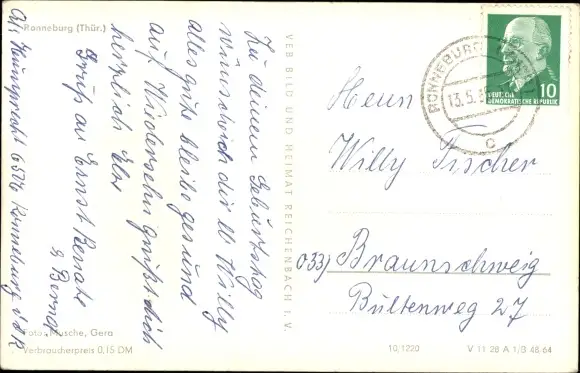 Ronneburg (Thür.)
Zu deinem Geburtstag
wünsch ich dir lb Willy
alles gute bleibe gesund
auf Wiedersehn grüßt dich
herzlich Elw
Gruß an Ernst Renate
& Bernd
Foto: Musche, Gera
Verbraucherpreis 0,15 DM
VEB BILD UND HEIMAT REICHENBACH I. V.
RONNEBURG
13.5.
c
DEUTSCHE
DEMOKRATISCHE REPUBLIK
10
Herrn
Willy Fischer
033) Braunschweig
Bültenweg 27
10/1220
V 11 28 A 1/B 48-64